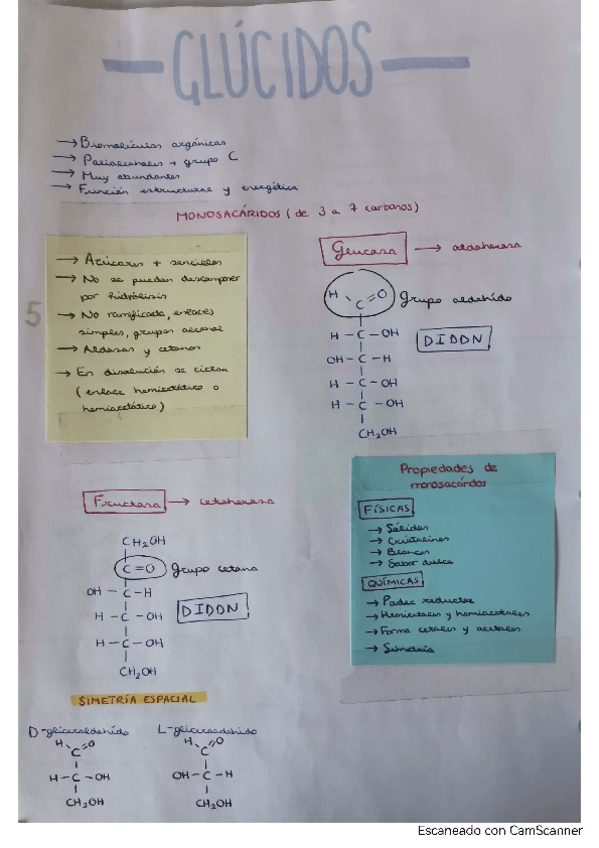 GLÚCIDOS
→ Biomoléculas orgánicas
→ Polialcoholes + grupo C
→ Muy abundantes
→ Función estructural y energética
MONOSACÁRIDOS (de 3 a 7 carbonos)
→ Azúcares + sencillos
→ No se pueden descomponer
por hidrólisis
→ No ramificada, enlaces
simples, grupos alcohol
→ Aldosas y cetonas
→ En disolución se ciclan
(enlace hemicetálico o
hemiacetálico)
5
Glucosa → aldohexosa
H C=O Grupo aldehído
H - C - OH
OH - C - H
H - C - OH
H - C - OH
CH2OH
DIDDN
Fructosa → cetohexosa
CH2OH
C=O Grupo cetona
OH - C - H
H - C - OH
H - C - OH
CH2OH
DIDDN
Propiedades de
monosacáridos
FÍSICAS
→ Sólidos
→ Cristalinos
→ Blancos
→ Sabor dulce
QUÍMICAS
→ Poder reductor
→ Hemicetales y hemiacetales
→ Forma cetales y acetales
→ Simetría
SIMETRÍA ESPACIAL
D-gliceraldehído
H C=O
H - C - OH
CH2OH
L-gliceraldehído
H C=O
OH - C - H
CH2OH
Escaneado con CamScanner